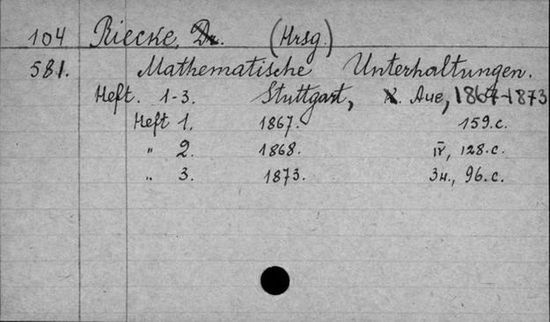 104 Riecke, Dr. (Hrsg.)
581. Mathematische Unterhaltungen.
Heft. 1-3. Stuttgart, K. Aue, 1867-1873
Heft 1. 1867. 159.c.
" 2. 1868. IV, 128.c.
" 3. 1873. 96.c.